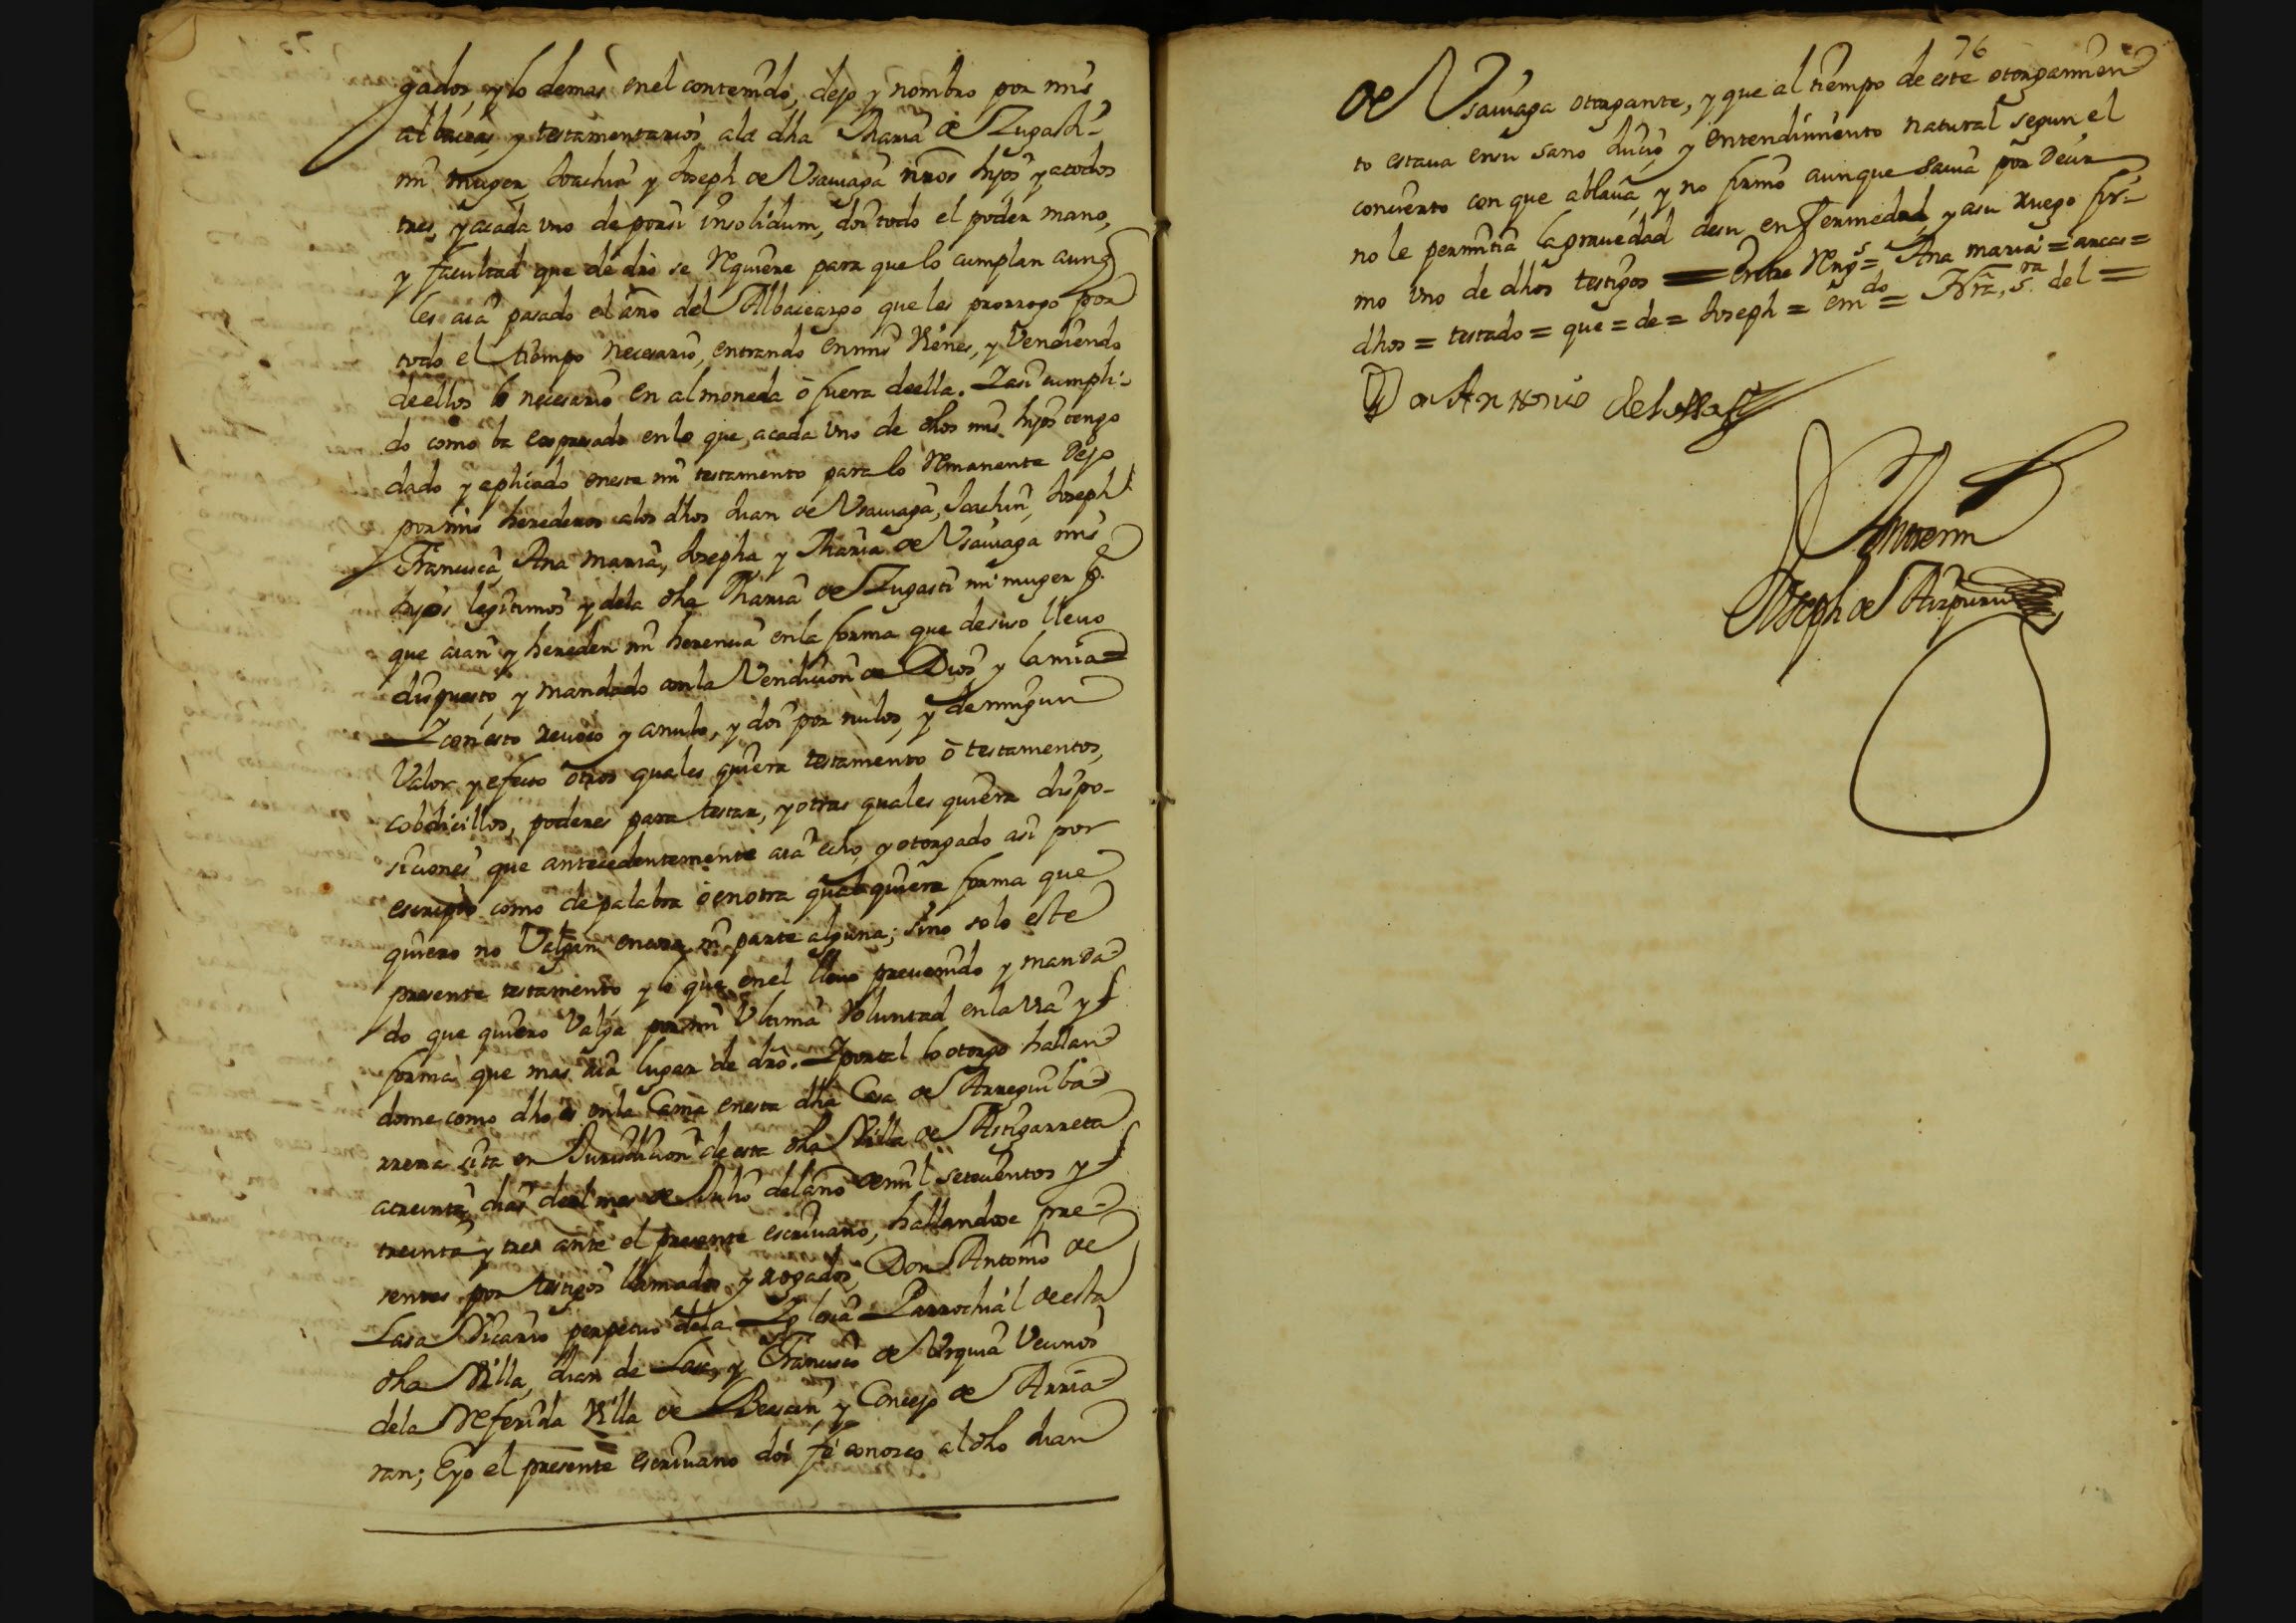 gados, y lo demas enel contenido, dejo y nombro por mis
albaceas, y testamentarios ala dha Maria de Zugasti
mi muger Joachin y Joseph de Vsauiaga nros hijos y atodos
tres, y acada vno de porsi insolidum, doi todo el poder mano,
y facultad que de dro se Requiere para que lo cumplan aunq
les aia pasado el año del Albaceazgo que les prorrogo por
todo el tiempo necesario, entrando enmis Vienes, y Vendiendo
deellos lo necesario en almoneda ô fuera deella. Y asi cumpli-
do como ba expresado enlo que, acada Vno de dhos mis hijos tengo
dado y aplicado eneste mi testamento para lo Remanente Dejo
por mis herederos alos dhos Juan de Vsauiaga, Joachin, Joseph
Francisca, Ana Maria, Josepha y Maria de Vsauiaga mis
hijos legitimos y dela dha Maria de Zugasti mi muger pª
que aian y hereden mi herencia enla forma que desuso lleuo
dispuesto, y mandado conla Vendicion de Dios y la mia=
Y con esto reuoco y anulo, y doi por nulos, y de ningun
Valor y efecto otros quales quiera testamento ô testamentos,
cobdicillos, poderes para testar, y otras quales quiera dispo-
siciones que antecedentemente aia echo y otorgado asi por
escripto como de palabra ô enotra qualquiera forma que
quiero no Valgan enesta ni parte alguna; sino solo este
presente testamento y lo que enel lleuo preuenido y manda-
do que quiero Valga por mi Vltima Voluntad enla via y
forma que mas aia lugar de dro. Y portal lo otorgo hallan-
dome como dho es enla Cama enesta dha Casa de Arreguiba-
rrena sita en Jurisdicion de esta dha Villa de Astigarreta
atreinta dias deel mes de Julio del año demil setecientos y
treinta y tres ante el presente escriuano, hallandose pre-
sentes por testigos llamados y rogados, Don Antonio de
Lasa Vicario perpetuo dela Iglesia Parrochial deesta
dha Villa, Juan de Lasa, y Francisco de Vrquia Vecinos
dela Referida Villa de Beasain, y Concejo de Arria-
ran; Eyo el presente escriuano doi fe conozco al dho Juan
76
de Vsauiaga otorgante, y que al tiempo de este otorgamien-
to estaua ensu sano Juicio y entendimiento natural segun el
concierto con que ablaua, y no firmo aunque sauia por Decir
no le permitia la grauedad desu enfermedad, y asu ruego fir-
mo vno de dhos testigos = Entre Rengs = Ana maria = arcas =
dhos = testado = que = de = Joseph = emdo = Nra, Sra del =
Don Antonio de Lassa
Ante mi
Joseph de Aizpuru